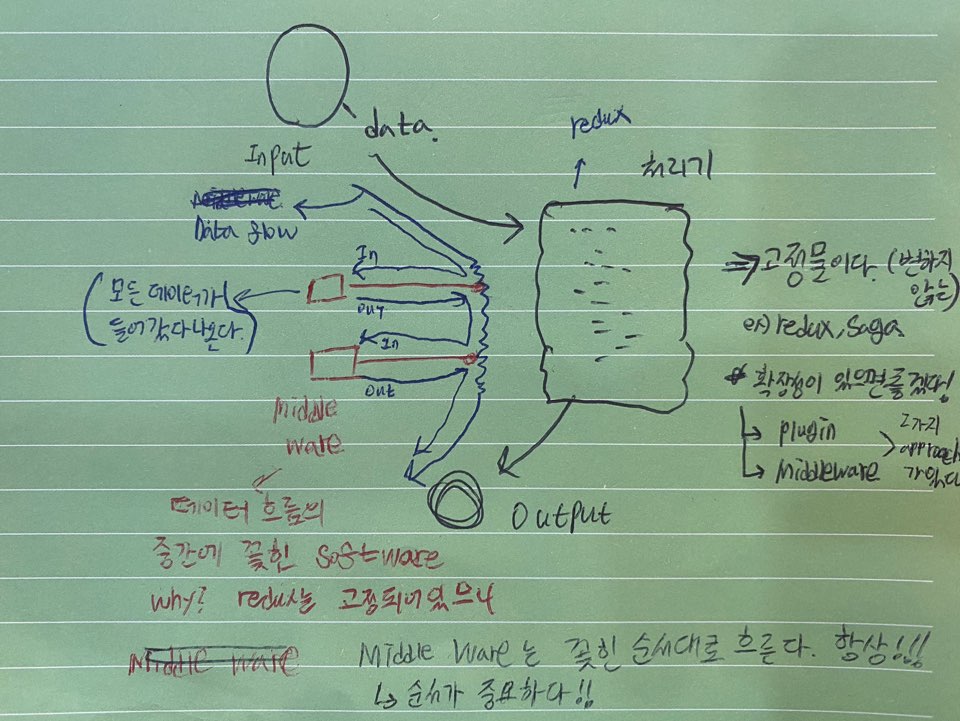 data.
Input
redux
처리기
Data flow
In
out
In
out
(모든 데이터가
들어갔다나온다.)
Middle
ware
⇒ 고정물이다. (변하지
않는)
ex) redux, Saga
* 확장성이 있으면좋겠다!
↳ plugin
↳ Middleware
2가지
approach
가있다
Output
데이터 흐름의
중간에 꽃힌 software
why? redux는 고정되어있으니
Middle ware
Middle Ware는 꽃힌 순서대로 흐른다. 항상!!!
↳ 순서가 중요하다!!